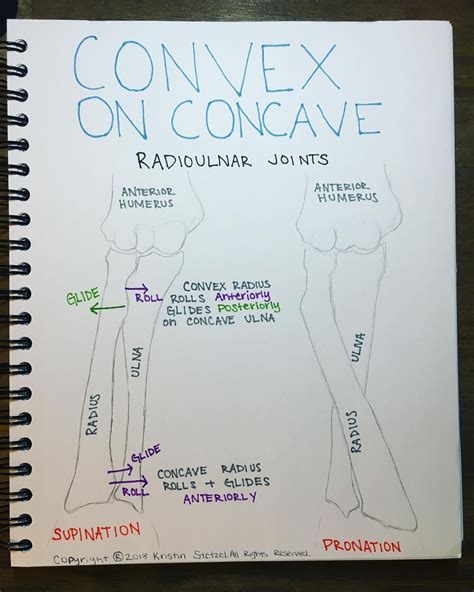 CONVEX
ON CONCAVE
RADIOULNAR JOINTS
ANTERIOR
HUMERUS
ANTERIOR
HUMERUS
GLIDE
ROLL
CONVEX RADIUS
ROLLS Anteriorly
GLIDES Posteriorly
on CONCAVE ULNA
ULNA
RADIUS
ULNA
RADIUS
GLIDE
ROLL
CONCAVE RADIUS
ROLLS + GLIDES
ANTERIORLY
SUPINATION
PRONATION
Copyright © 2018 Kristin Stetzel. All Rights Reserved.